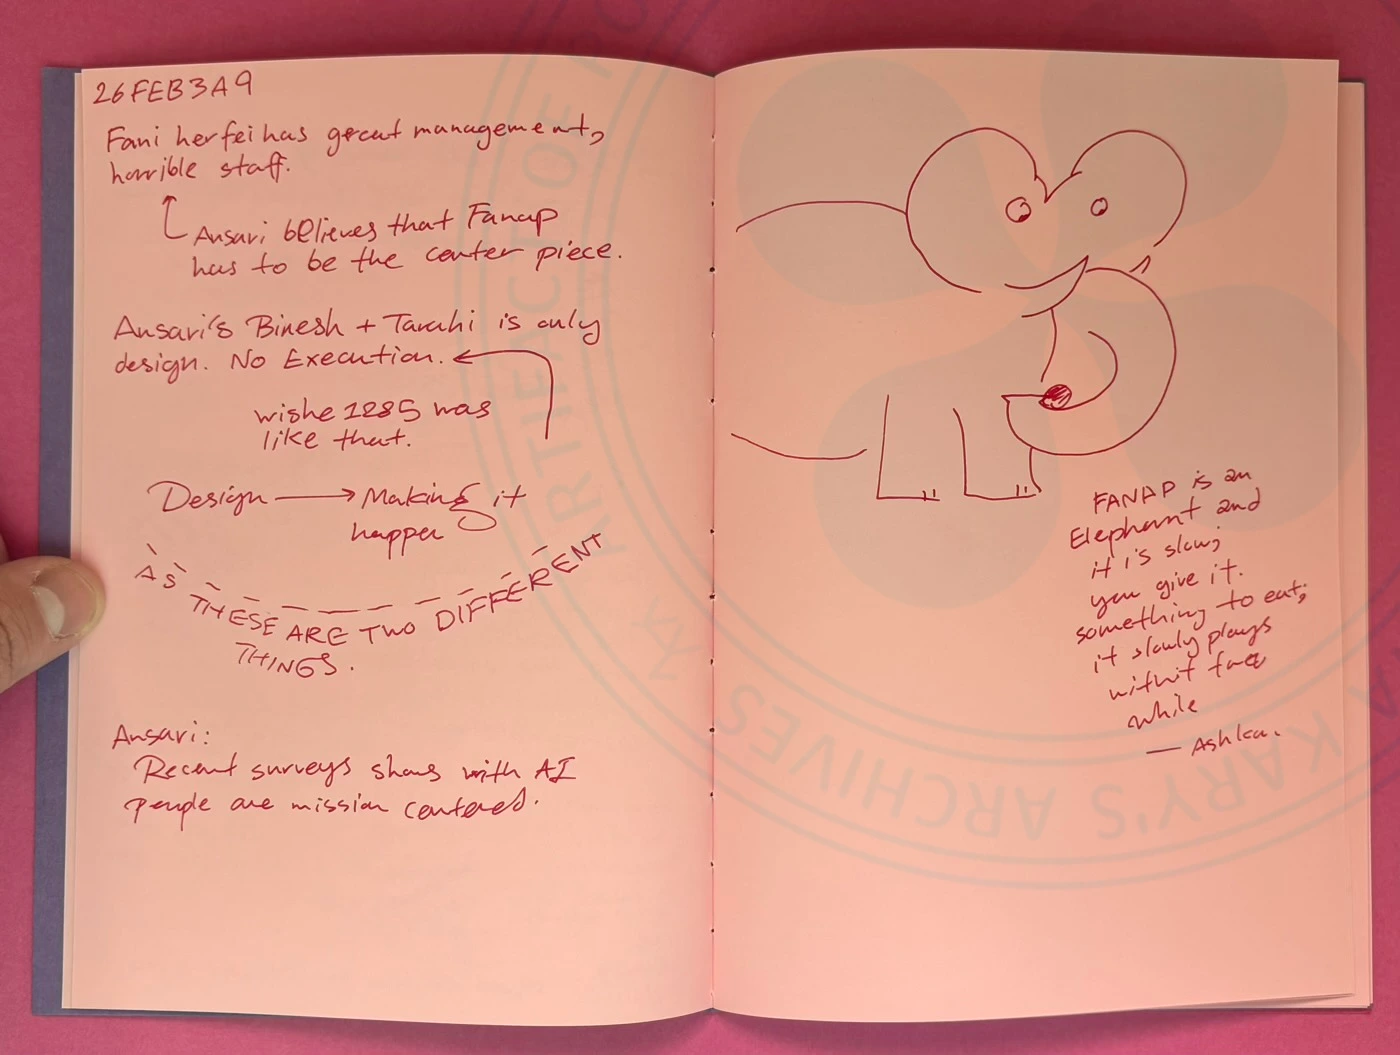 26FEB3A9
Fani herfei has great management,
horrible staff.
Ansari believes that Fanap
has to be the center piece.
Ansari's Binesh + Tarahi is only
design. No Execution.
wishe 1285 was
like that.
Design → Making it
happer
AS THESE ARE TWO DIFFERENT
THINGS.
Ansari:
Recent surveys shows with AI
people are mission centered.
FANAP is an
Elephant and
it is slow;
you give it.
something to eat;
it slowly plays
with it
while
— Ashkan.
KARY'S ARCHIVES